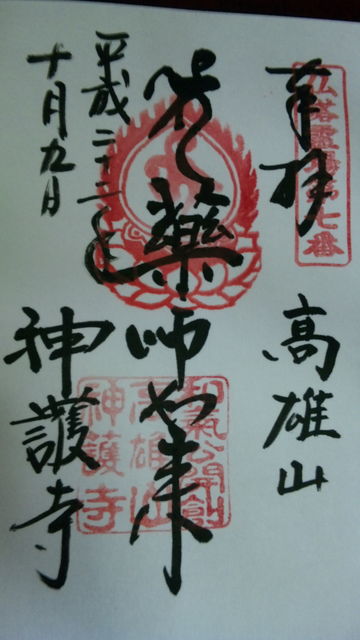 奉拝
高雄山
仏塔霊場第七番
薬師如来
和氣公開創
高雄山
神護寺
平成二十二年
十月九日
神護寺